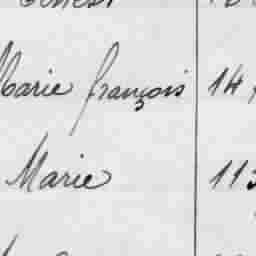 Marie françois 14
Marie 113